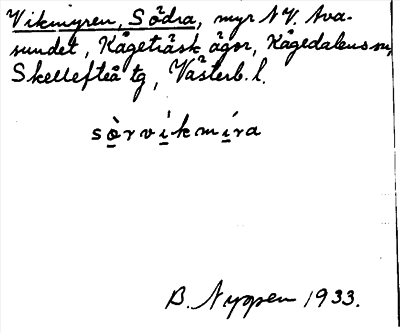 Vikmyren, Södra, myr NV. Ava-
sundet, Kågeträsk ägor, Kågedalens sn,
Skellefteå tg, Västerb. l.
sò̱rví̱kmí̱ra
B. Nyppen 1933.